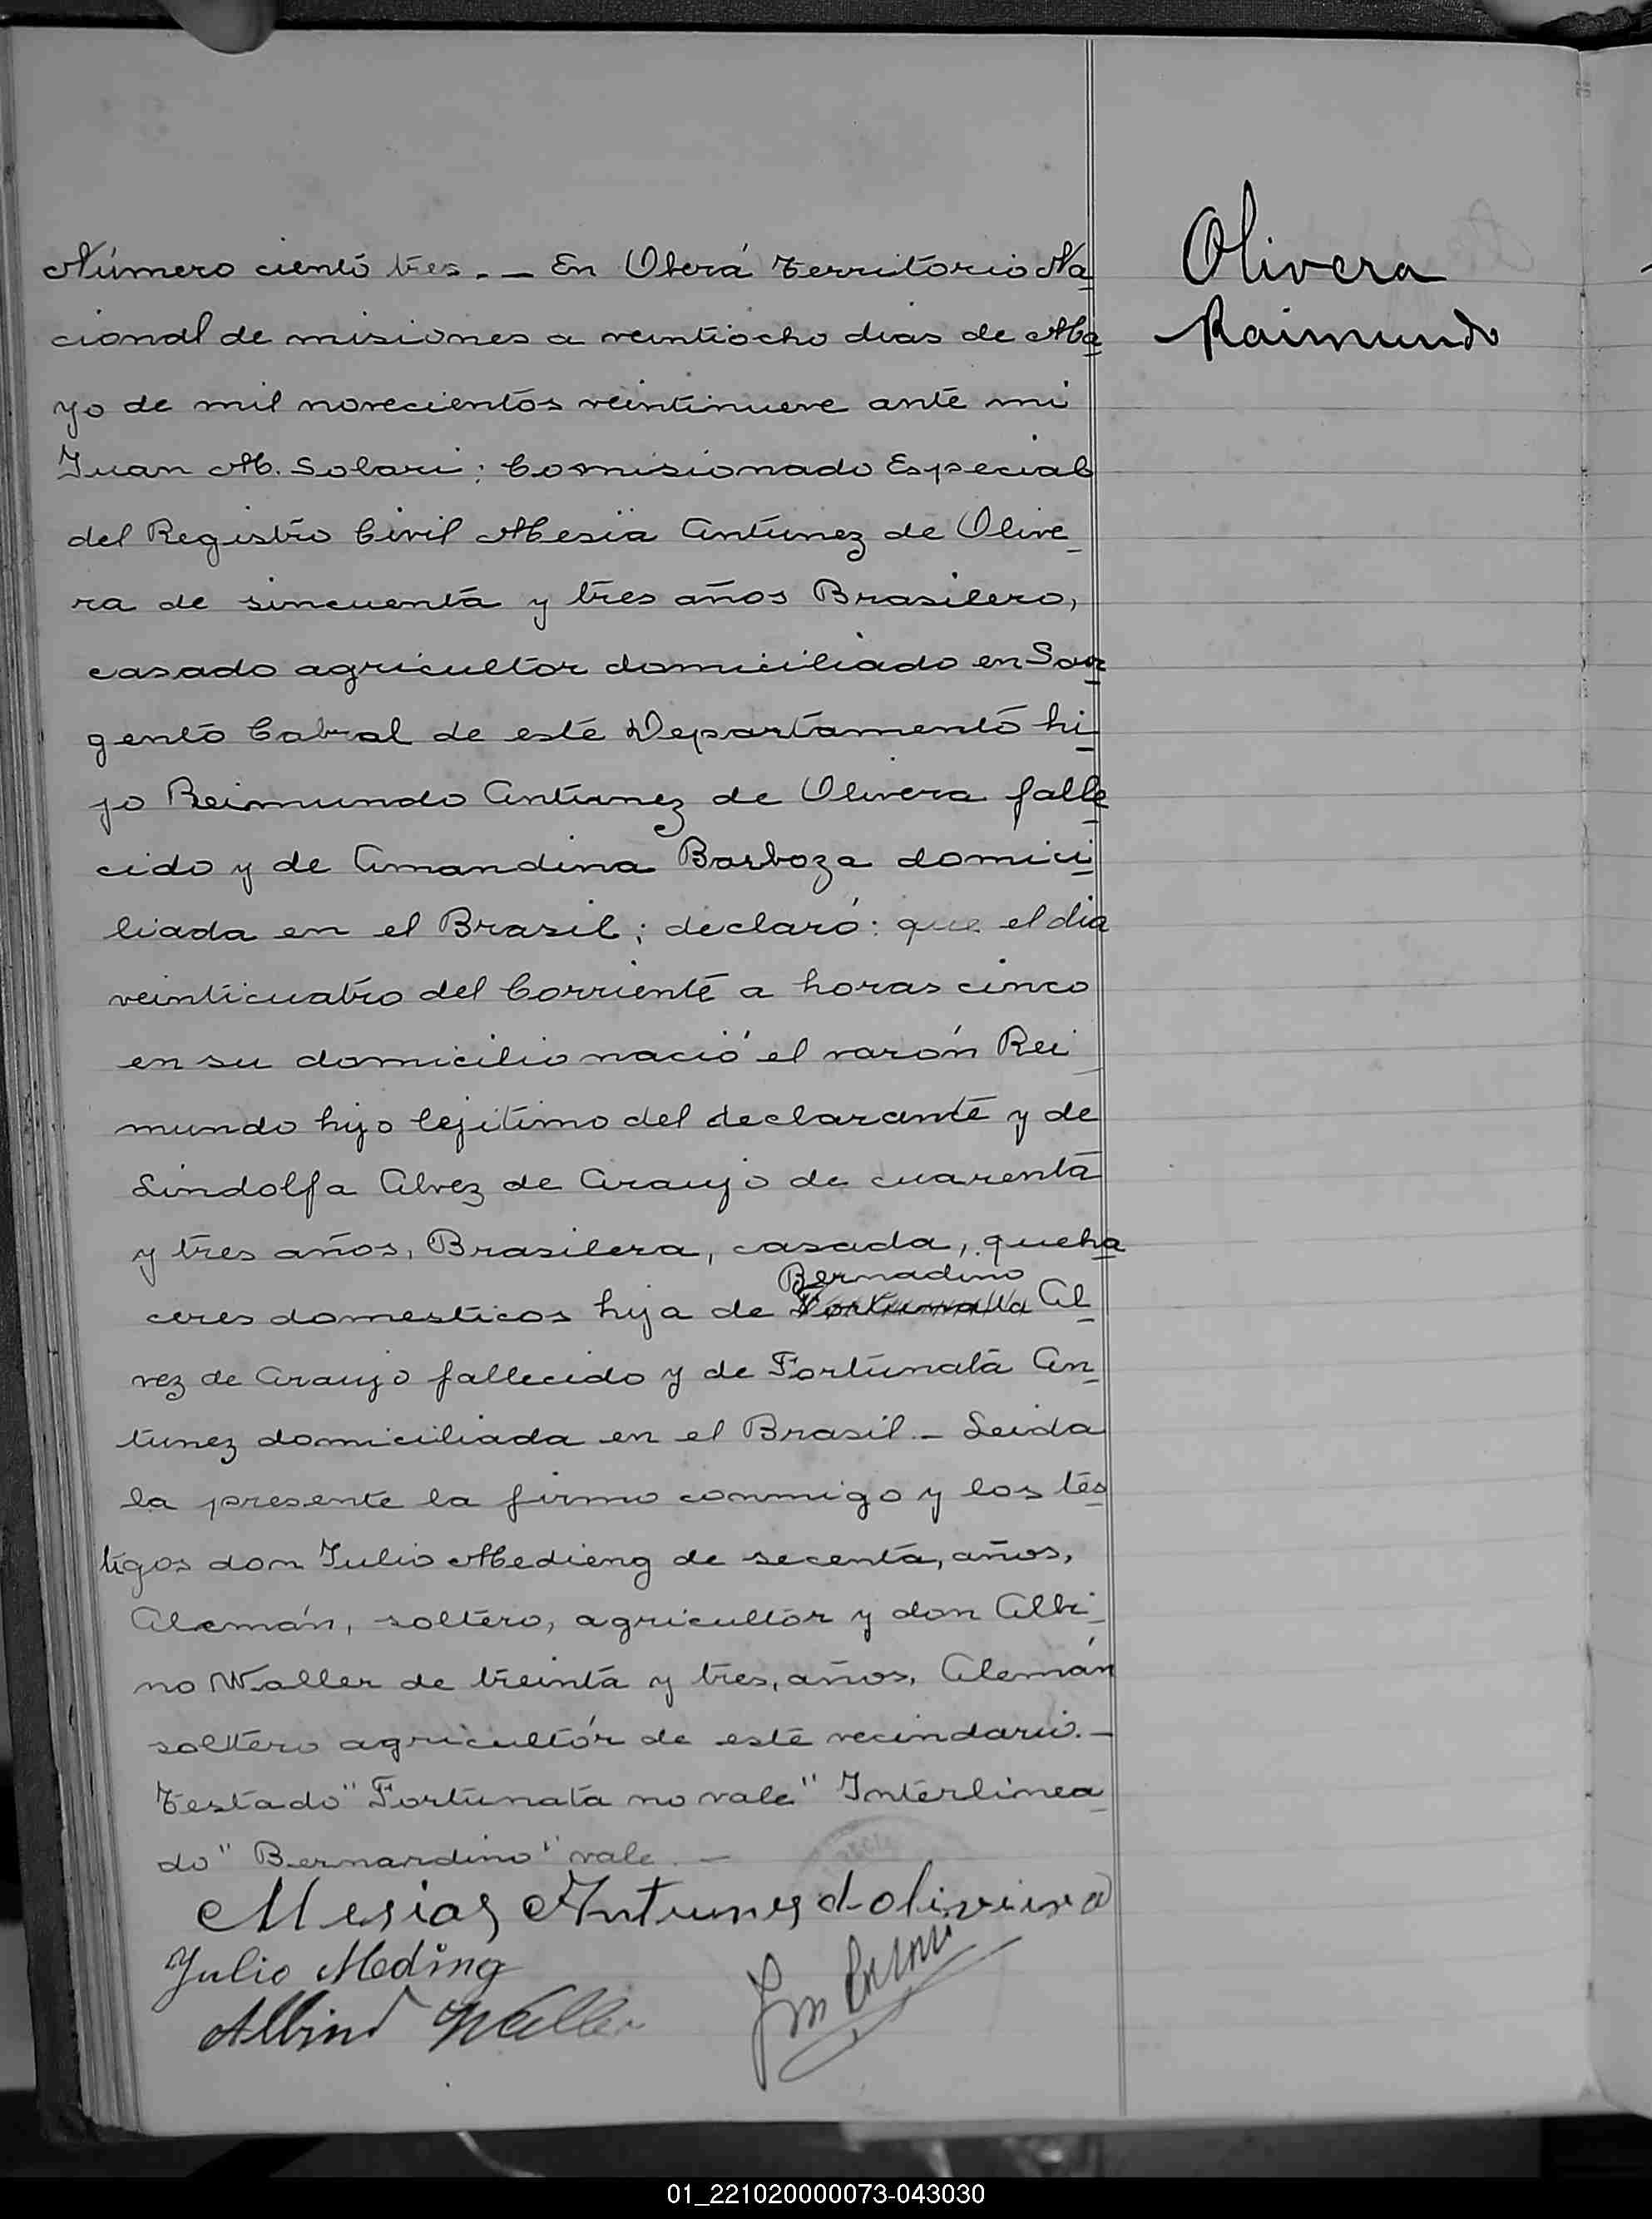 Olivera
Raimundo
Número ciento tres. — En Oberá Territorio Na
cional de misiones a veintiocho dias de Ma
yo de mil novecientos veintinueve ante mi
Juan M. Solari; Comisionado Especial
del Registro Civil Mesïa Antunez de Olive
ra de sincuenta y tres años Brasilero,
casado agricultor domiciliado en Sar
gento Cabral de este Departamento hi
jo Reimundo Antunez de Olivera falle
cido y de Amandina Barboza domici
liada en el Brasil; declaró: que el dia
veinticuatro del Corriente a horas cinco
en su domicilio nació el varón Rei
mundo hijo lejitimo del declarante y de
Lindolfa Alvez de Araujo de cuarenta
y tres años, Brasilera, casada, queha
Bernadino
ceres domesticos hija de Fortunata Al
vez de Araujo fallecido y de Fortunata An
tunez domiciliada en el Brasil. — Leida
la presente la firmo conmigo y los tes
tigos don Julio Medieng de secenta, años,
Alemán, soltero, agricultor y don Albi
no Waller de treinta y tres, años, Alemán
soltero agricultór de este vecindario. —
Testado "Fortunata no vale" Interlinea
do "Bernardino" vale. —
Mesias Antunes d oliveira
Julio Meding
Albino Waller
01_221020000073-043030